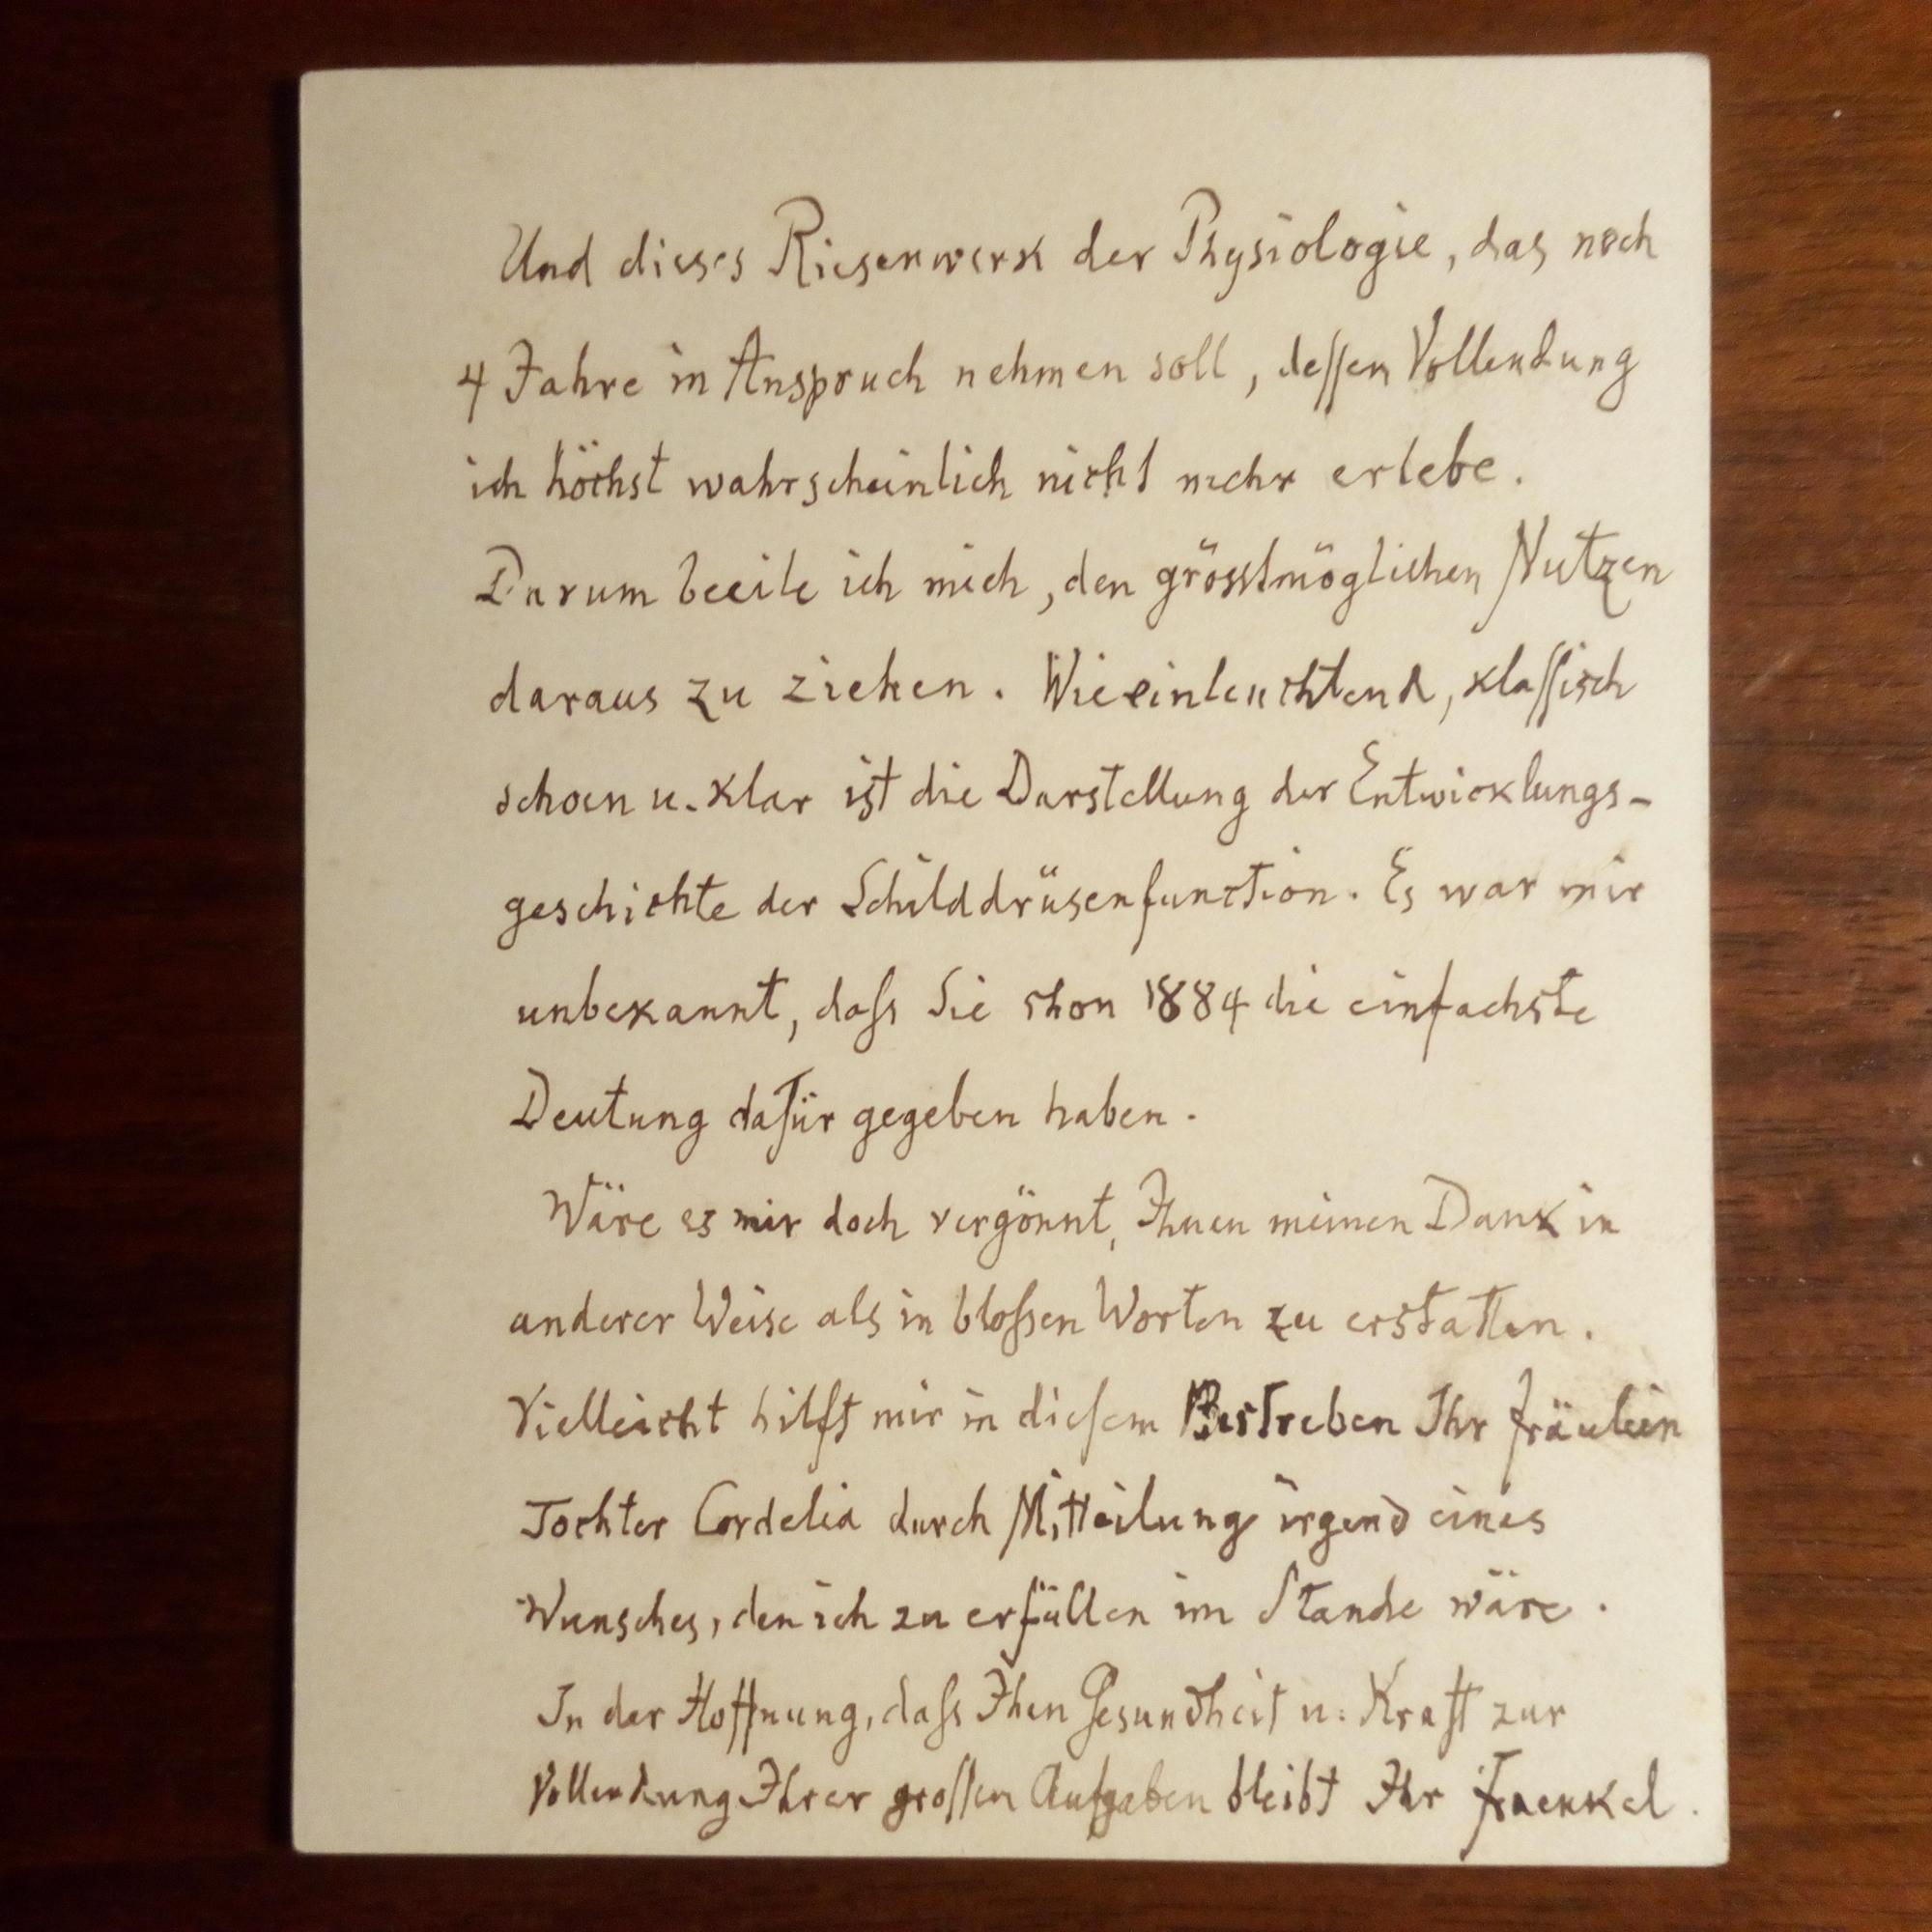 Und dieses Riesenwerk der Physiologie, das noch
4 Jahre in Anspruch nehmen soll, deſſen Vollendung
ich höchst wahrscheinlich nicht mehr erlebe.
Darum beeile ich mich, den grösstmöglichen Nutzen
daraus zu ziehen. Wie einleuchtend, klaſſisch
schoen u. klar ist die Darstellung der Entwicklungs-
geschichte der Schilddrüsenfunction. Es war mir
unbekannt, daſs Sie schon 1884 die einfachste
Deutung dafür gegeben haben.
Wäre es mir doch vergönnt, Ihnen meinen Dank in
anderer Weise als in bloſsen Worten zu erstatten.
Vielleicht hilft mir in dieſem Bestreben Ihr Fräulein
Tochter Cordelia durch Mitteilung irgend eines
Wunsches, den ich zu erfüllen im Stande wäre.
In der Hoffnung, daſs Ihen Gesundheit u. Kraft zur
Vollendung Ihrer groſſen Aufgaben bleibt Ihr Fraenkel.